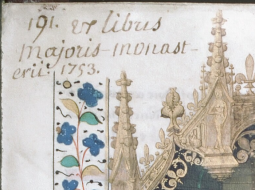 191. Ex libris
majoris-monast-
erii. 1753.